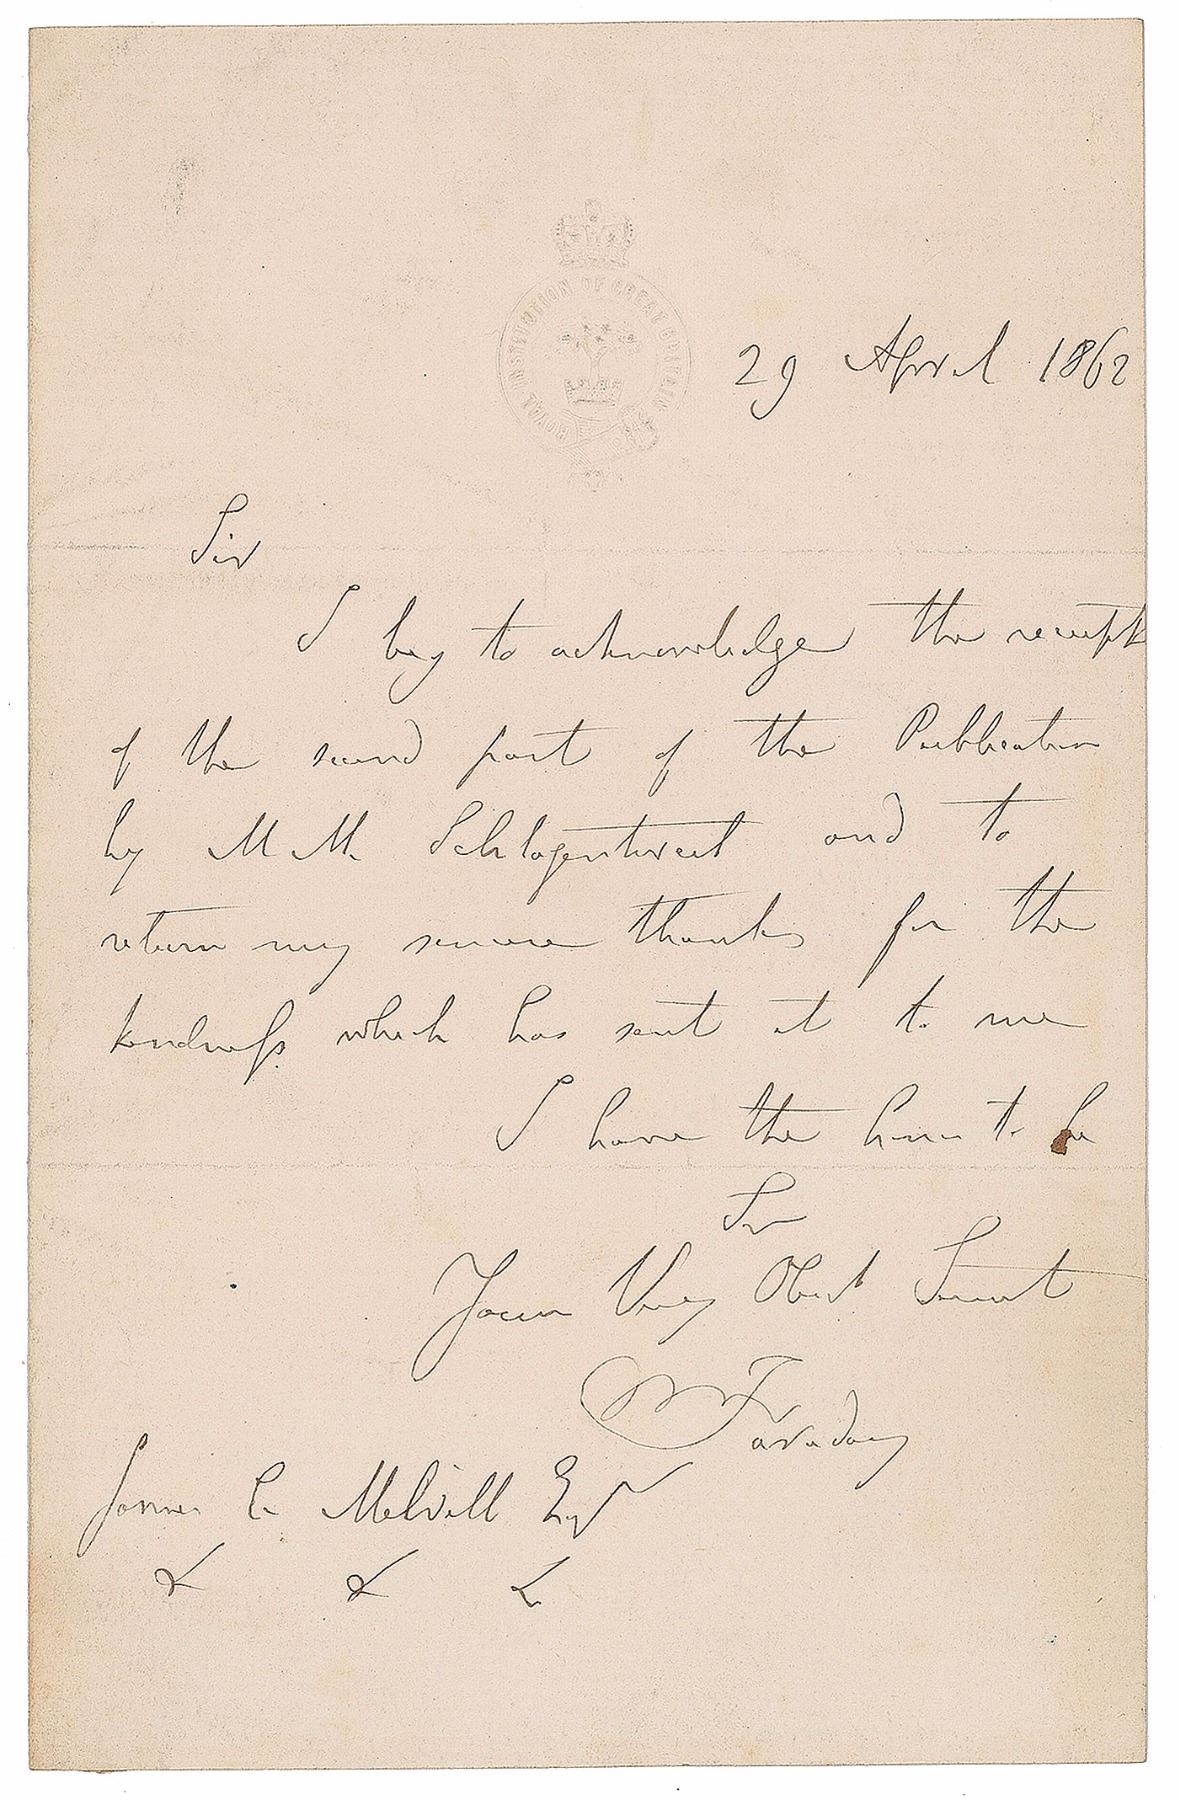 ROYAL INSTITUTION OF GREAT BRITAIN
29 April 1862
Sir
I beg to acknowledge the receipt
of the second part of the Publication
by M.M. Schlagentweit and to
return my sincere thanks for the
kindness which has sent it to me
I have the honor to be
Sir
Your Very Obedt Servant
M Faraday
James C. Melvill Esqr
& & &